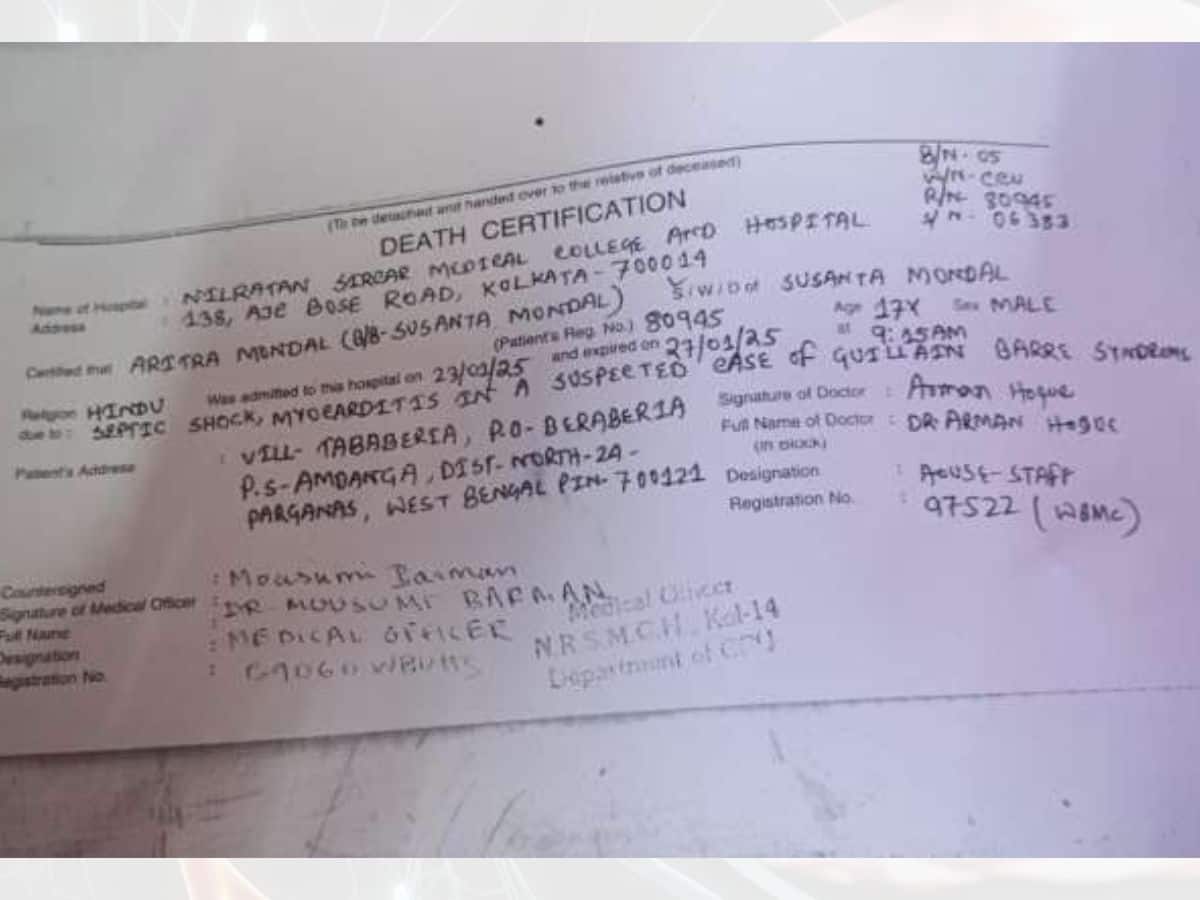 B/N- 05
W/N- CCU
R/N- 80945
S/N- 06383
(To be detached and handed over to the relative of deceased)
DEATH CERTIFICATION
Name of Hospital : NILRATAN SIRCAR MEDICAL COLLEGE AND HOSPITAL
Address : 138, AJC BOSE ROAD, KOLKATA - 700014
Certified that ARITRA MONDAL (B/B-SUSANTA MONDAL) S/W/D of SUSANTA MONDAL
(Patient's Reg. No.) 80945 Age 17Y Sex MALE
Religion HINDU Was admitted to this hospital on 23/01/25 and expired on 27/01/25 at 9:15AM
due to : SEPTIC SHOCK, MYOCARDITIS IN A SUSPECTED CASE OF GUILLAIN BARRE SYNDROME
Patient's Address : VILL- TABABERIA, P.O- BERABERIA
P.S- AMDANGA, DIST- NORTH-24-
PARGANAS, WEST BENGAL PIN- 700121
Signature of Doctor : Arman Hoque
Full Name of Doctor : DR. ARMAN HOQUE
(in block)
Designation : HOUSE-STAFF
Registration No. : 97522 (WBMC)
Countersigned
Signature of Medical Officer : Mousumi Barman
Full Name : DR. MOUSUMI BARMAN
Designation : MEDICAL OFFICER
Registration No. :
Medical Officer
N.R.S.M.C.H., Kol-14
Department of